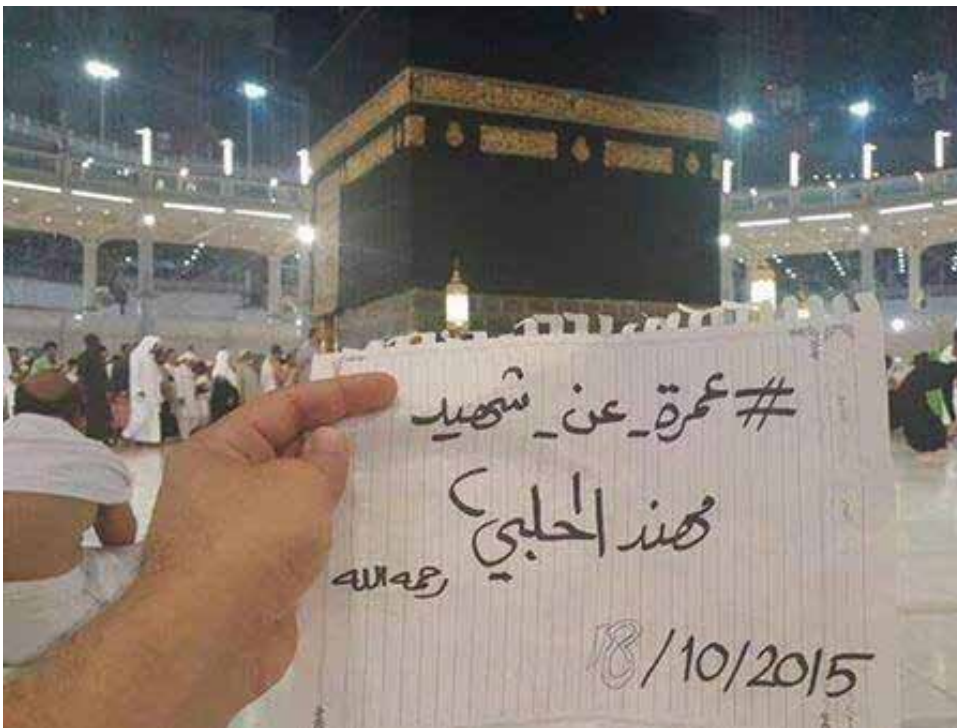 #عمرة_عن_شهيد
مهند الحلبي
رحمه الله
18/10/2015